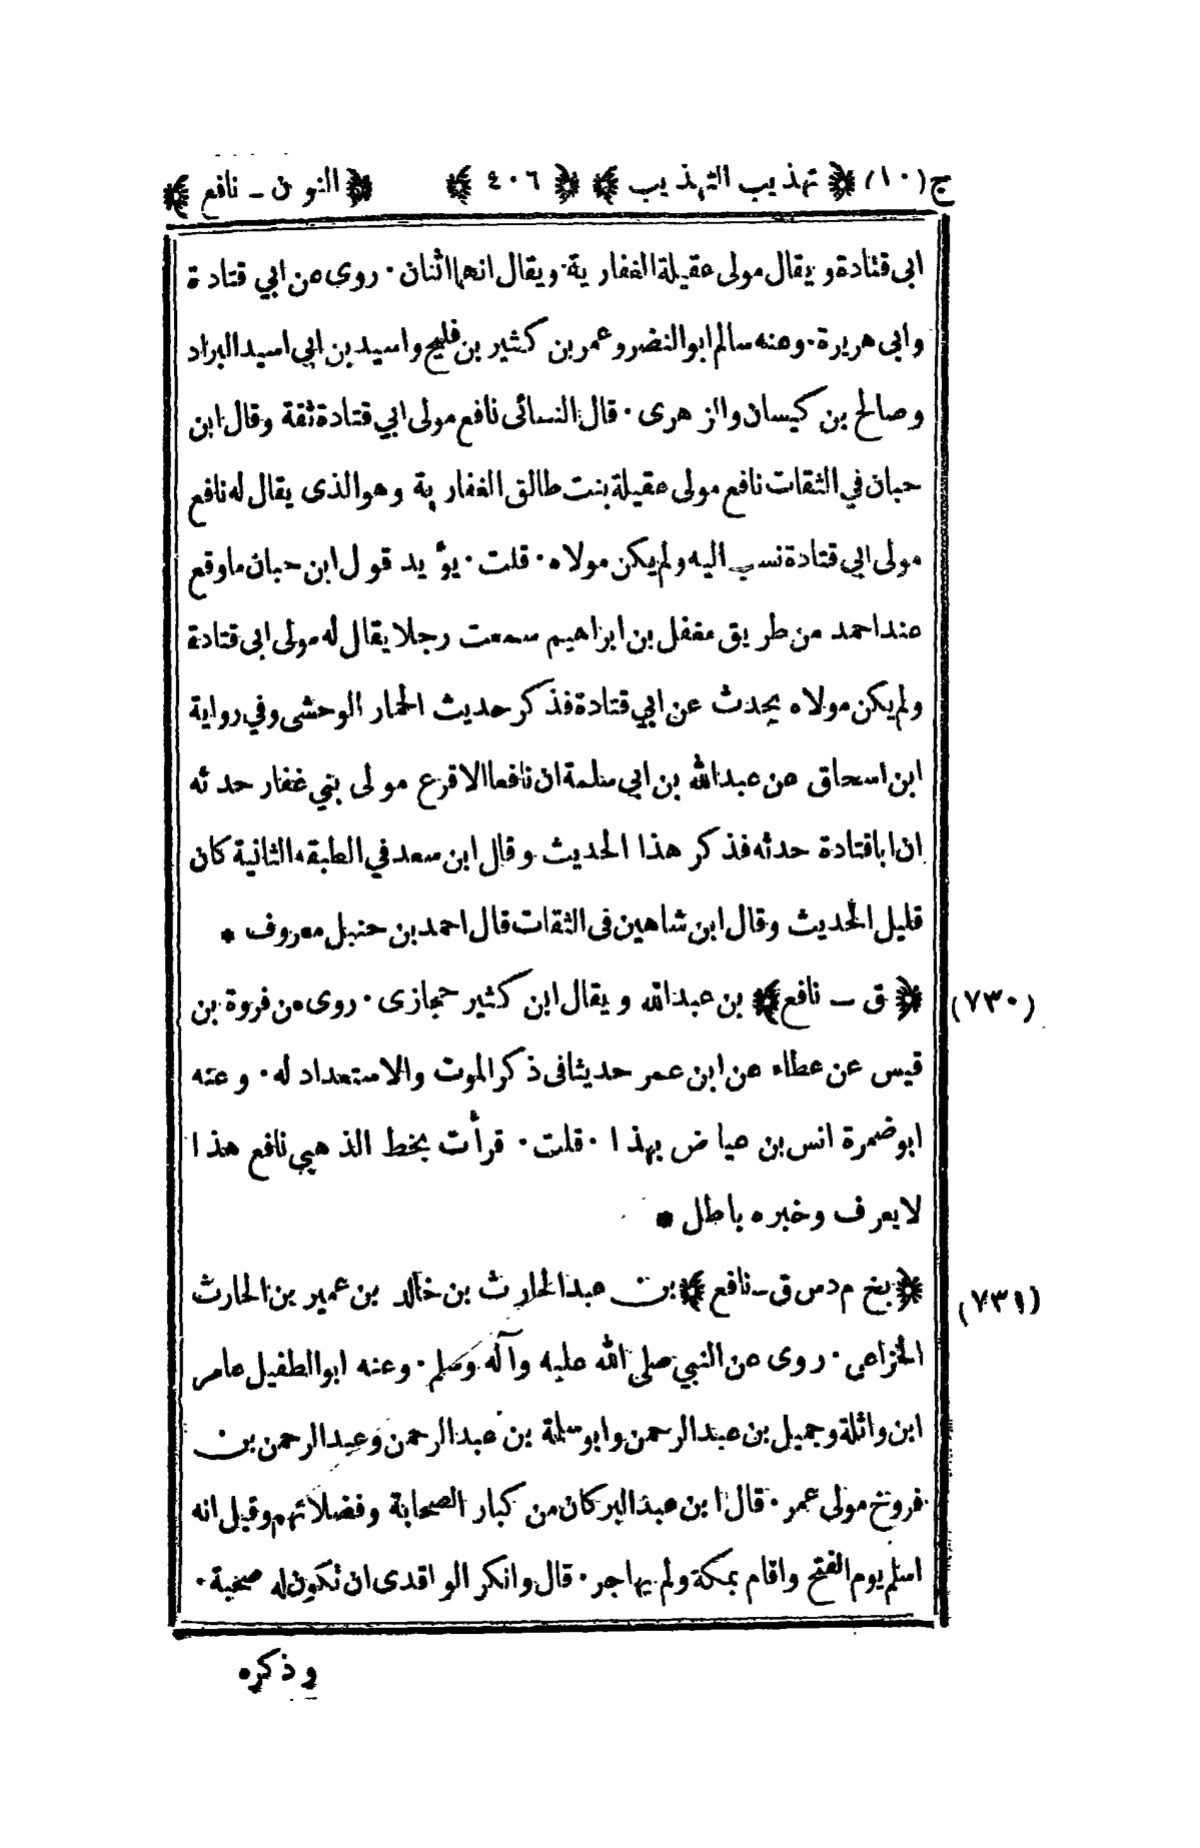 ج(١٠) ﴿ تهذيب التهذيب ﴾ ﴿ ٤٠٦ ﴾ ﴿ النون ـ نافع ﴾
ابى قتادة ويقال مولى عقيلة الغفارية ويقال انهما اثنان · روى عن ابي قتادة
وابى هريرة · وعنه سالم ابو النضر وعمر بن كثير بن فليح واسيد بن ابي اسيد البراد
وصالح بن كيسان والزهرى · قال النسائى نافع مولى ابي قتادة ثقة وقال ابن
حبان في الثقات نافع مولى عقيلة بنت طالق الغفارية وهو الذى يقال له نافع
مولى ابي قتادة نسب اليه ولم يكن مولاه · قلت · يؤيد قول ابن حبان ما وقع
عند احمد من طريق معقل بن ابراهيم سمعت رجلا يقال له مولى ابى قتادة
ولم يكن مولاه يحدث عن ابي قتادة فذكر حديث الحمار الوحشى وفي رواية
ابن اسحاق عن عبد الله بن ابي سلمة ان نافعا الاقرع مولى بني غفار حدثه
ان ابا قتادة حدثه فذكر هذا الحديث وقال ابن سعد في الطبقة الثانية كان
قليل الحديث وقال ابن شاهين فى الثقات قال احمد بن حنبل معروف *
(٧٣٠) ﴿ ق ـ نافع ﴾ بن عبد الله ويقال ابن كثير حجازى · روى عن فروة بن
قيس عن عطاء عن ابن عمر حديثا فى ذكر الموت والاستعداد له · وعنه
ابو ضمرة انس بن عياض بهذا · قلت · قرأت بخط الذهبي نافع هذا
لا يعرف وخبره باطل *
(٧٣١) ﴿ بخ م د س ق ـ نافع ﴾ بن عبد الحارث بن خالد بن عمير بن الحارث
الخزاعى · روى عن النبي صلى الله عليه وآله وسلم · وعنه ابو الطفيل عامر
ابن واثلة وجميل بن عبد الرحمن وابو سلمة بن عبد الرحمن وعبد الرحمن بن
فروخ مولى عمر · قال ابن عبد البر كان من كبار الصحابة وفضلائهم وقيل انه
اسلم يوم الفتح واقام بمكة ولم يهاجر · قال وانكر الواقدى ان تكون له صحبة ·
وذكره